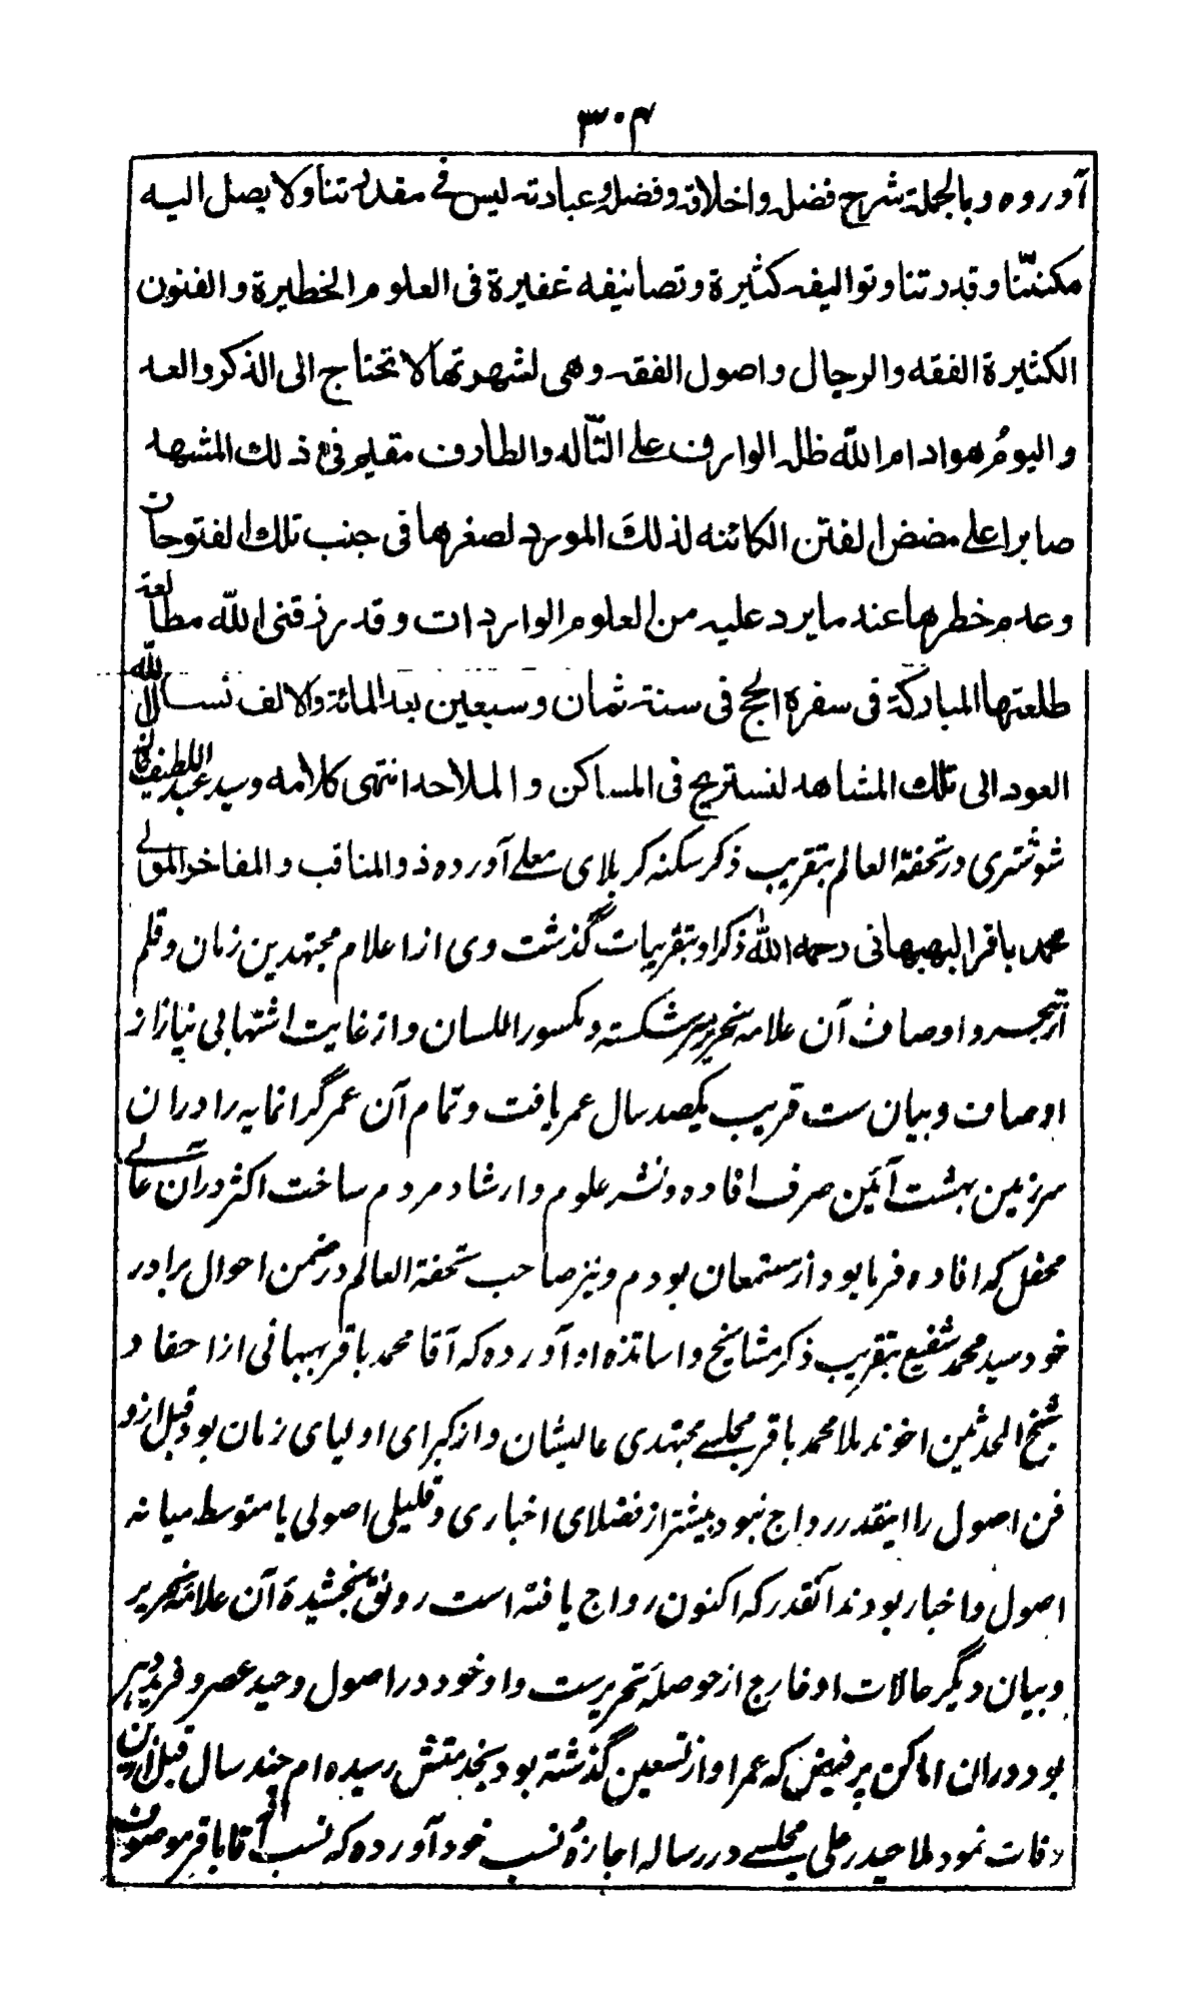 ۳۰۴
آورده وبالجملة شرح فضله واخلاقه وفضله وعبادته ليس فى مقدرتنا ولا يصل اليه
مكنتنا وقدرتنا وتواليفه كثيرة وتصانيفه غفيرة فى العلوم الخطيرة والفنون
الكثيرة الفقه والرجال واصول الفقه وهى لشهرتها لا تحتاج الى الذكر والعد
واليوم هو ادام الله ظله الوارف على التاله والطارف مقيم فى ذلك المشهد
صابرا على مضض الفتن الكائنه لذلك المورد لصغرها فى جنب تلك الفتوحات
وعدم خطرها عند ما يرد عليه من العلوم الواردات وقد رزقنى الله مطالعة
طلعتها المباركة فى سفرة الحج فى سنة ثمان وسبعين بعد المائة والالف نسال الله
العود الى تلك المشاهد لنستريح فى المساكن و الملاحد انتهى كلامه وسيد عبد اللطيف خان
شوشتری در تحفة العالم بتقریب ذکر سکنه کربلای معلے آورده ذو المناقب والمفاخر المولے
محمد باقر البهبهانی رحمه الله ذکر او بتقریبات گذشت وی از اعلام مجتهدین زمان وقلم
از تبحر و اوصاف آن علامه نحریر سرشکسته و مکسور اللسان و از غایت اشتها بی نیاز از
اوصاف و بیان ست قریب یکصد سال عمر یافت و تمام آن عمر گرانمایه را در ان
سرزمین بهشت آئین صرف افاده و نشر علوم و ارشاد مردم ساخت اکثر در آن عالے
محفل که افاده فرما بود از مستمعان بودم و نیز صاحب تحفة العالم در ضمن احوال برادر
خود سید محمد شفیع بتقریب ذکر مشایخ و اساتذه او آورده که آقا محمد باقر بهبهانی از احفاد
شیخ المحدثین اخوند ملا محمد باقر مجلسے مجتهدی عالیشان و از کبرای اولیای زمان بود قبل ازو
فن اصول را اینقدر رواج نبود بیشتر از فضلای اخباری و قلیلی اصولی یا متوسط میانه
اصول و اخبار بودند آنقدر که اکنون رواج یافته است رونق بخشیدهٔ آن علامهٔ نحریر
و بیان دیگر حالات او خارج از حوصلهٔ تحریرست و او خود در اصول وحید عصر و فرید دهر
بود در ان اماکن پر فیض که عمر او از تسعین گذشته بود بخدمتش رسیده ام چند سال قبل ازین
وفات نمود ملا حیدر علی مجلسے در رساله اجازهٔ نسب خود آورده که نسب آقا باقر موصوف